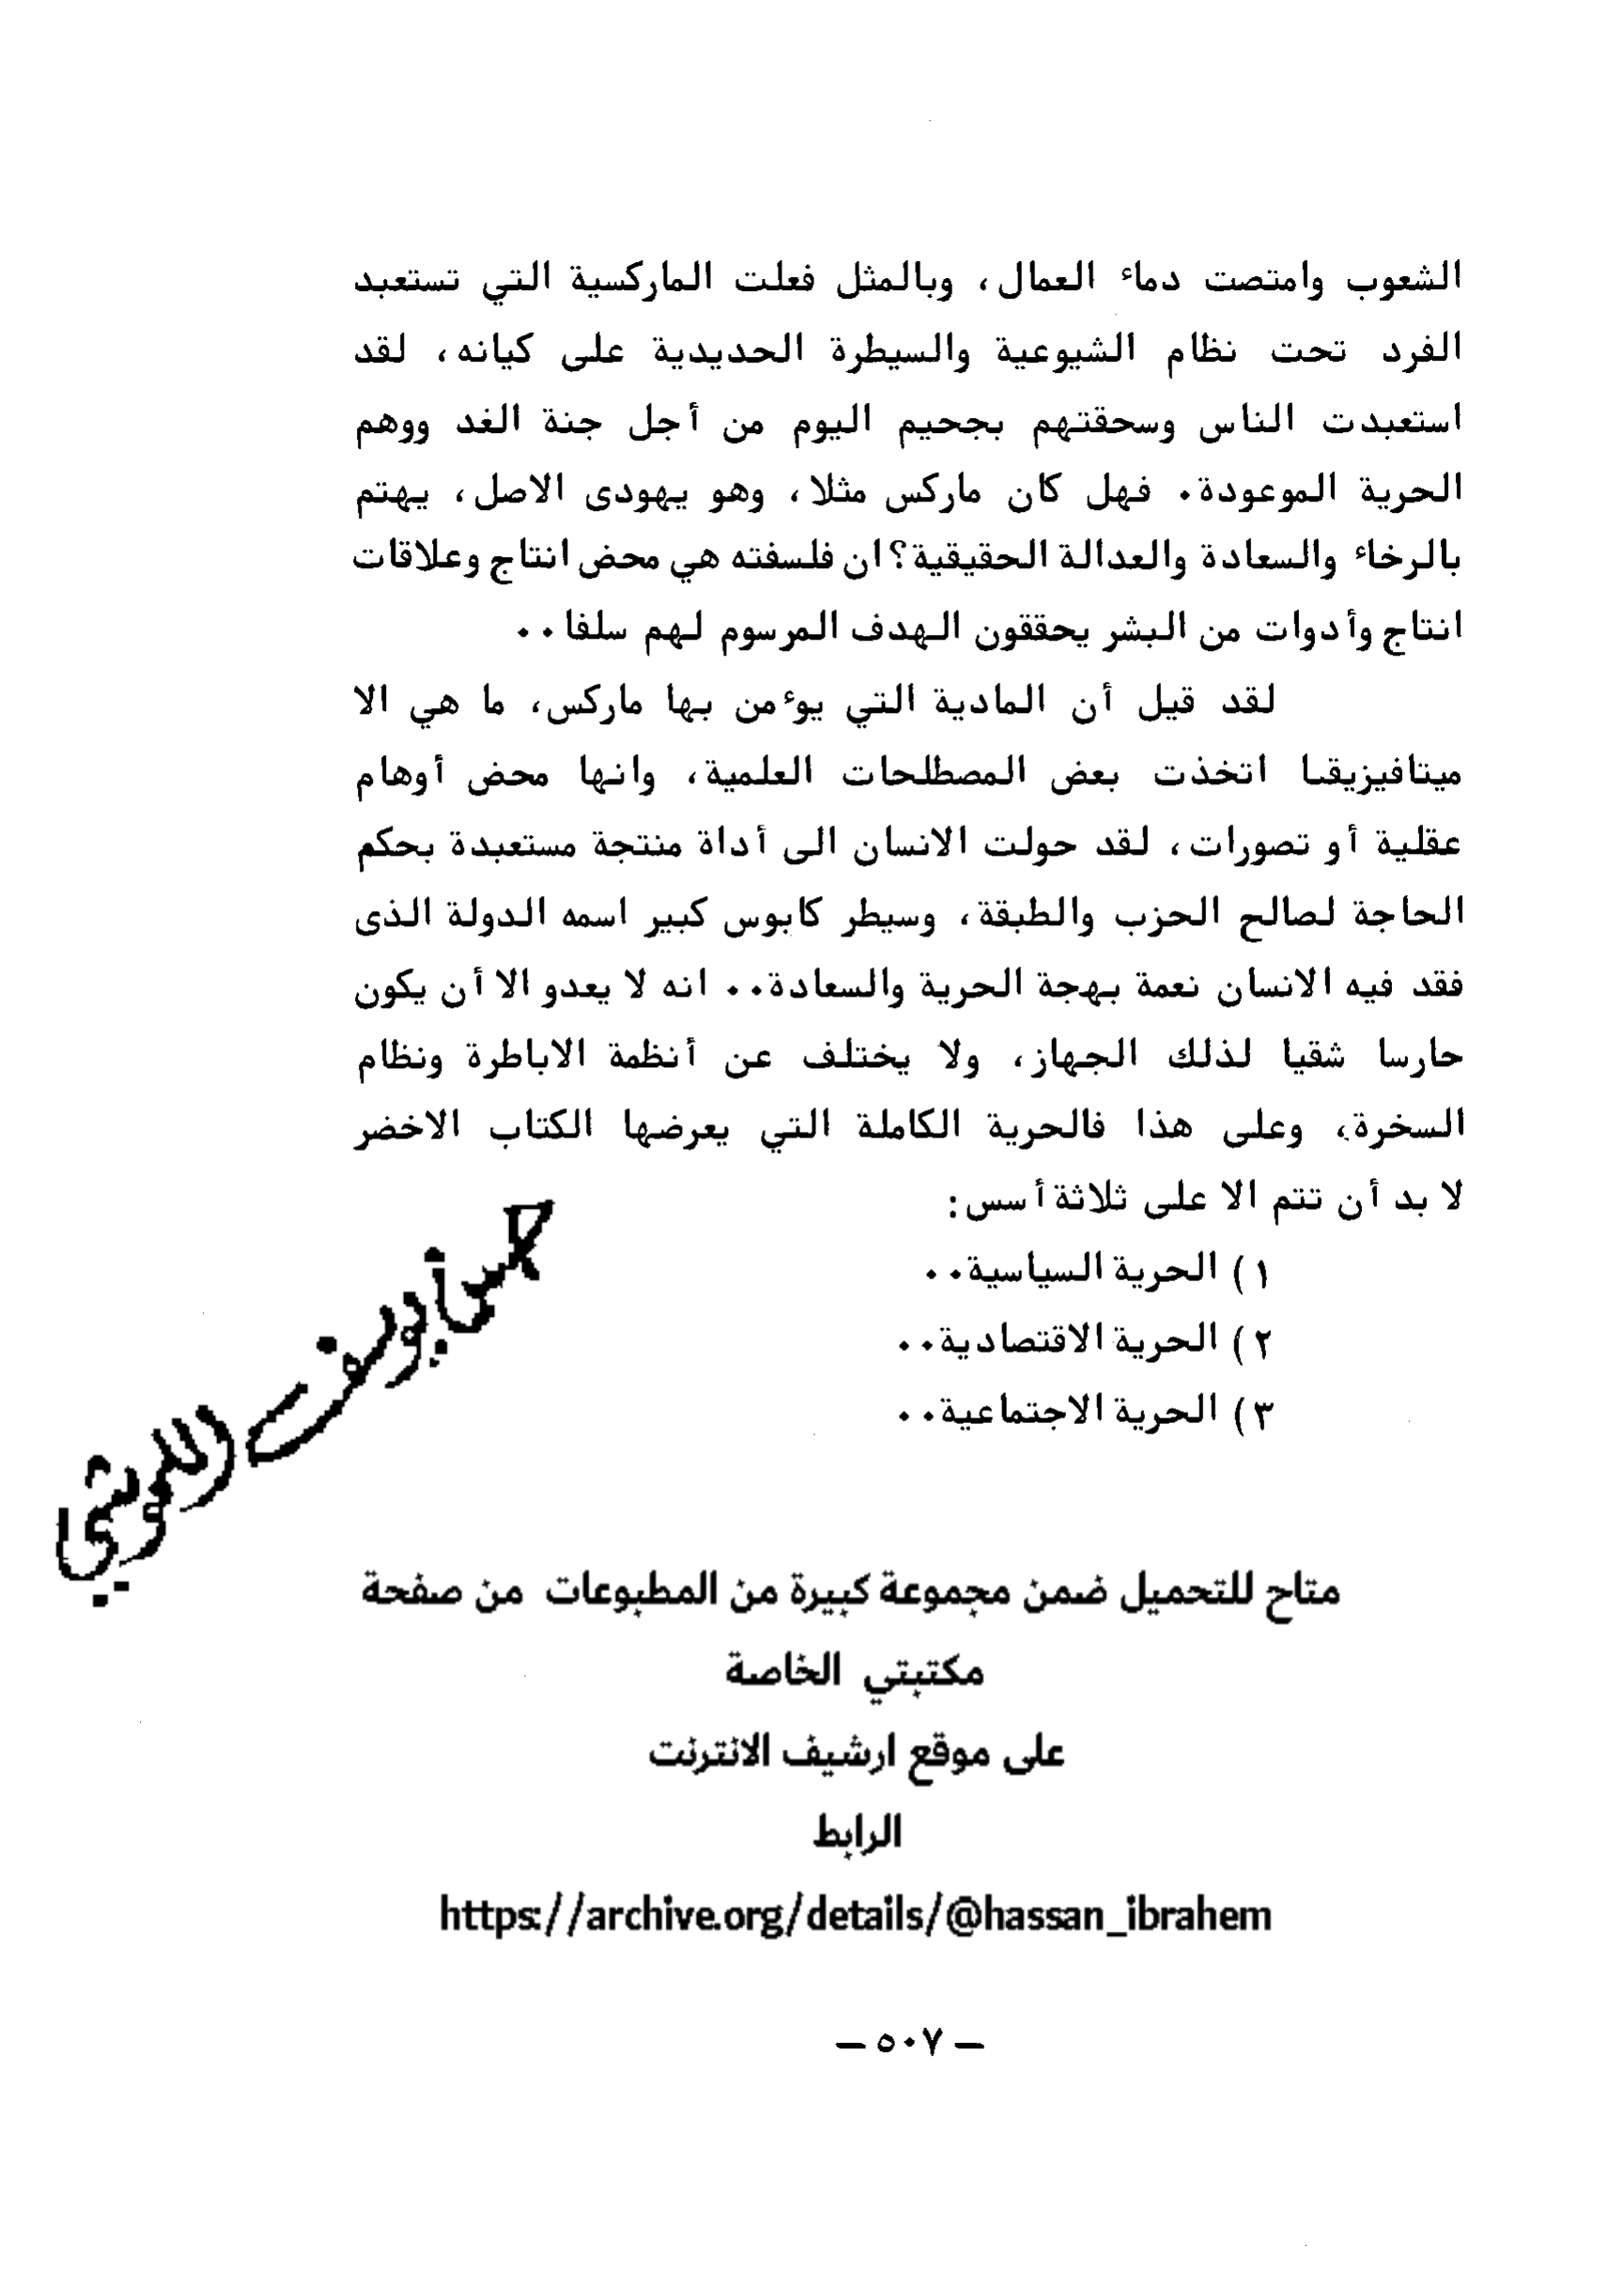 الشعوب وامتصت دماء العمال، وبالمثل فعلت الماركسية التي تستعبد
الفرد تحت نظام الشيوعية والسيطرة الحديدية على كيانه، لقد
استعبدت الناس وسحقتهم بجحيم اليوم من أجل جنة الغد ووهم
الحرية الموعودة. فهل كان ماركس مثلا، وهو يهودى الاصل، يهتم
بالرخاء والسعادة والعدالة الحقيقية؟ ان فلسفته هي محض انتاج وعلاقات
انتاج وأدوات من البشر يحققون الهدف المرسوم لهم سلفا..
لقد قيل أن المادية التي يوءمن بها ماركس، ما هي الا
ميتافيزيقا اتخذت بعض المصطلحات العلمية، وانها محض أوهام
عقلية أو تصورات، لقد حولت الانسان الى أداة منتجة مستعبدة بحكم
الحاجة لصالح الحزب والطبقة، وسيطر كابوس كبير اسمه الدولة الذى
فقد فيه الانسان نعمة بهجة الحرية والسعادة.. انه لا يعدو الا أن يكون
حارسا شقيا لذلك الجهاز، ولا يختلف عن أنظمة الاباطرة ونظام
السخرة، وعلى هذا فالحرية الكاملة التي يعرضها الكتاب الاخضر
لا بد أن تتم الا على ثلاثة أسس:
١) الحرية السياسية..
٢) الحرية الاقتصادية..
٣) الحرية الاجتماعية..
متاح للتحميل ضمن مجموعة كبيرة من المطبوعات من صفحة
مكتبتي الخاصة
على موقع ارشيف الانترنت
الرابط
https://archive.org/details/@hassan_ibrahem
— ٥٠٧ —